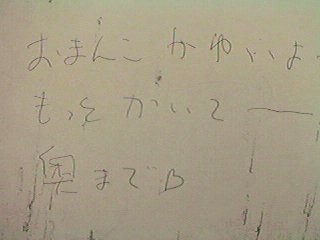 おまんこ かゆいよ
もっと かいて ー
奥までD